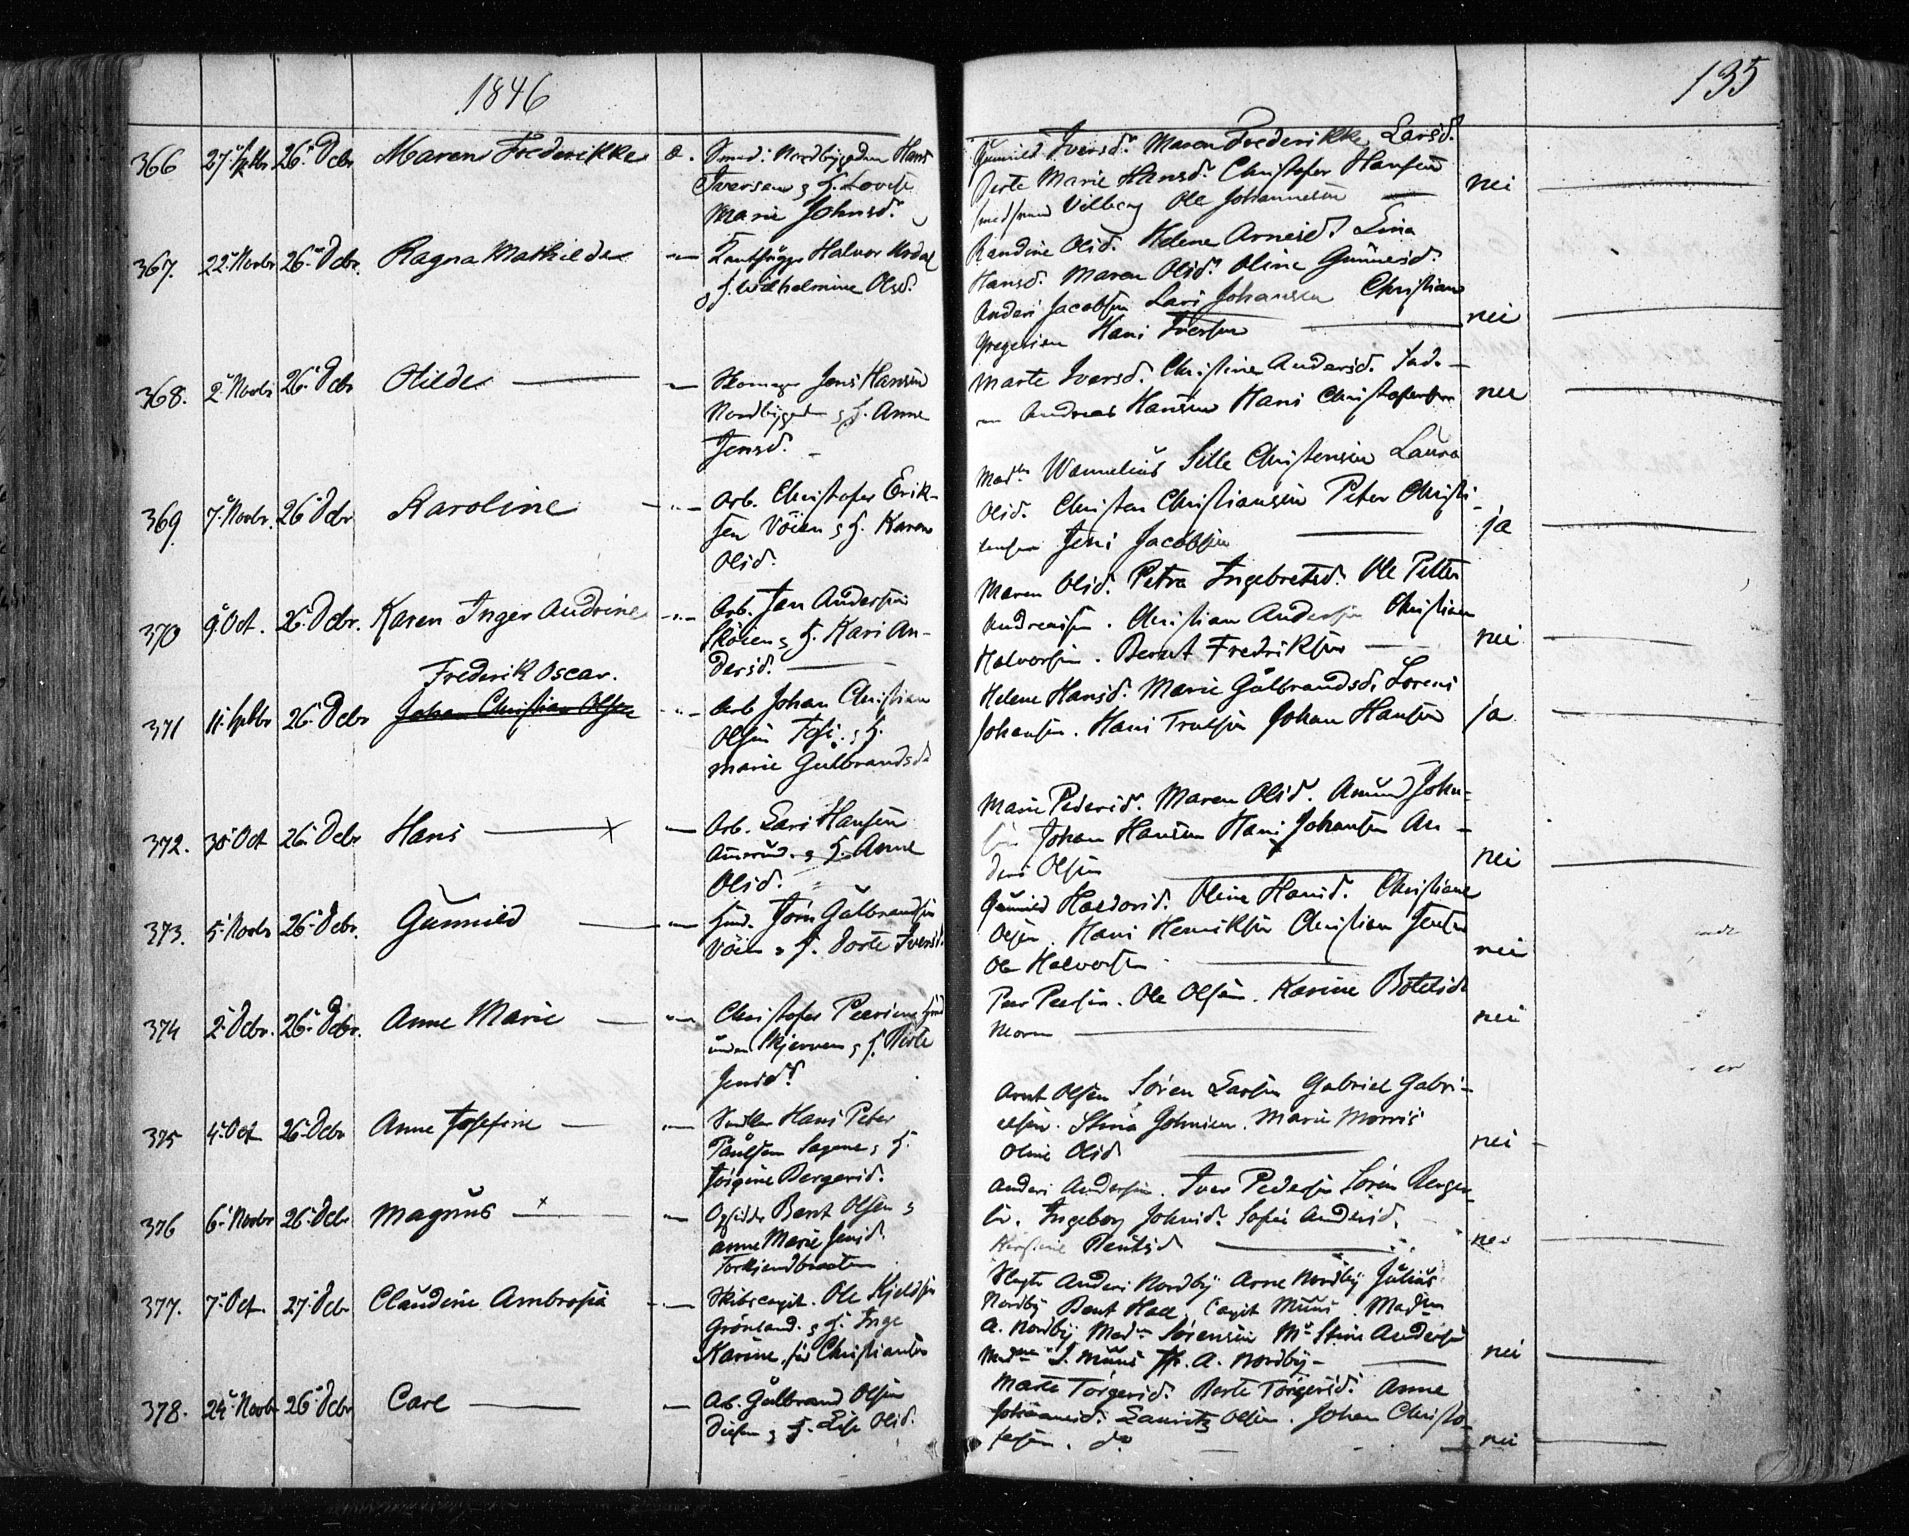 1846
135
366 27 Septbr 26 Debr Maren Frederikke Smed: Nordbygaden Hans
Iversen & H. Lovise
Marie Johnsd.
Gunnild Iversd. Maren Frederikke Larsd.
Berte Marie Hansd. Christofer Hansen
Vilberg Ole Johannesen nei
367. 22 Novbr 26 Debr. Ragna Mathilde Halvor
H. Wilhelmine Olsd.
Randine Olsd. Helene Arnesd. Lina
Hansd. Maren Olsd. Oline Gunnersd.
Anders Jacobsen Lars Johansen Christian
Gregersen Hans Iversen nei
368. 2 Novbr 26 Debr Otilde Skomager Jens Hansen
Nordbygaden & H. Anne
Jensd.
Marte Iversd. Christine Andersd.
Andreas Hansen Hans Christofersen nei
369. 7 Novbr. 26 Debr Karoline Arb. Christofer Erik-
sen Vöien & H. Karen
Olsd.
Wamelius Sille Christensen Laura
Olsd. Christen Christiansen Peter Christi-
ansen Jens Jacobsen ja
370 9 Oct. 26 Debr. Karen Inger Andrine Arb. Jan Andersen
Sköien & H. Kari An-
dersd.
Maren Olsd. Petra Ingebretsd. Ole Petter
Andreassen. Christian Andersen Christian
Halvorsen. Bernt Fredriksen nei
Frederik Oscar.
371 11 Septbr 26 Debr Johan Christian Olsen Arb Johan Christian
Olsen & H.
Marie Gulbrandsd.
Helene Hansd. Marie Gulbrandsd. Lorens
Johansen. Hans Trulsen Johan Hansen ja
372. 30 Oct 26 Debr Hans x Arb. Lars Hansen
& H. Anne
Olsd.
Marie Pedersd. Maren Olsd. Amund John-
sen Johan Hansen Hans Johansen An-
ders Olsen nei
373. 5 Novbr 26 Debr. Gunnild Jörn Gulbrandsen
Vöien & H. Dorte Iversd.
Gunnild Halvorsd. Oline Hansd. Christiane
Olsen. Hans Henriksen Christian Jensen
Ole Halvorsen nei
374 2 Debr. 26 Debr. Anne Marie Christofer
under Skjerven & H. Berte
Jensd.
Peer Peersen. Ole Olsen. Karine
nei
375 4 Oct 26 Debr Anne Josefine Hans Peter
Paulsen Sagene & H.
Jörgine Bergersd.
Arnt Olsen Sören Larsen Gabriel Gabri-
elsen. Stina Johnsen. Marie Morris
Oline Olsd nei
376 6 Novbr 26 Debr Magnus x Bernt Olsen &
Anne Marie Jensd.
Torkjendbraaten
Anders Andersen. Iver Pedersen Sören
Ingeborg Johnsd. Sofie Andersd.
Bentsd nei
377. 7 Oct. 27 Debr Claudine Ambrosia Skibscapit. Ole Kjeldsen
Grönland. & H. Inge
Karine Christiansen
Anders Nordby Arne Nordby Julius
Nordby Bent Capit Muus. Madm
A. Nordby Madm Sörensen Stine Andersen
Madme S. Muus A. Nordby nei
378. 24 Novbr 26 Debr Carl Arb. Gulbrand Olsen
& H. Lise Olsd.
Marte Torgersd. Berte Torgersd. Anne
Johannesd. Lauritz Olsen. Johan Christo-
fersen. do nei